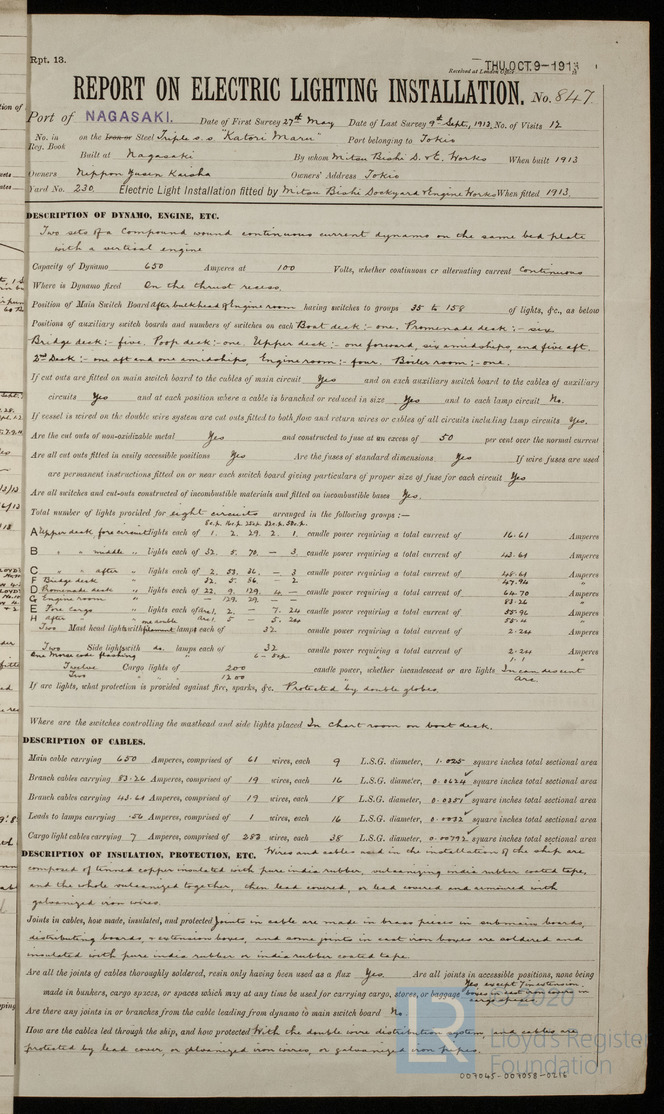 Rpt. 13.
THU. OCT. 9 - 1913
Received at London Office
REPORT ON ELECTRIC LIGHTING INSTALLATION. No. 847
Port of NAGASAKI. Date of First Survey 27th May Date of Last Survey 9th Sept, 1913. No. of Visits 12
No. in Reg. Book on the Iron or Steel Triple s.s. "Katori Maru" Port belonging to Tokio
Built at Nagasaki By whom Mitsu Bishi D. & E. Works When built 1913
Owners Nippon Yusen Kaisha Owners' Address Tokio
Yard No. 230 Electric Light Installation fitted by Mitsu Bishi Dockyard & Engine Works When fitted 1913.
DESCRIPTION OF DYNAMO, ENGINE, ETC.
Two sets of a Compound wound continuous current dynamo on the same bed plate
with a vertical engine
Capacity of Dynamo 650 Amperes at 100 Volts, whether continuous or alternating current Continuous
Where is Dynamo fixed On the thrust recess.
Position of Main Switch Board After bulkhead of Engine room having switches to groups 35 to 158 of lights, &c., as below
Positions of auxiliary switch boards and numbers of switches on each Boat deck:- one. Promenade deck:- six.
Bridge deck:- five. Poop deck:- one. Upper deck:- one forward, six amidships, and five aft.
2nd Deck:- one aft and one amidships, Engine room:- four. Boiler room:- one.
If cut outs are fitted on main switch board to the cables of main circuit Yes and on each auxiliary switch board to the cables of auxiliary
circuits Yes and at each position where a cable is branched or reduced in size Yes and to each lamp circuit No.
If vessel is wired on the double wire system are cut outs fitted to both flow and return wires or cables of all circuits including lamp circuits Yes.
Are the cut outs of non-oxidizable metal Yes and constructed to fuse at an excess of 50 per cent over the normal current
Are all cut outs fitted in easily accessible positions Yes Are the fuses of standard dimensions Yes If wire fuses are used
are permanent instructions fitted on or near each switch board giving particulars of proper size of fuse for each circuit Yes
Are all switches and cut-outs constructed of incombustible materials and fitted on incombustible bases Yes.
Total number of lights provided for eight circuits arranged in the following groups:-
8c.p. 16c.p. 25c.p. 32c.p. 50c.p.
A Upper deck, fore circuit lights each of 1. 2. 29. 2. 1. candle power requiring a total current of 16.61 Amperes
B " " middle " lights each of 32. 5. 70. - 3. candle power requiring a total current of 43.61 Amperes
C " " after " lights each of 2. 53. 36. - 3 candle power requiring a total current of 48.61 Amperes
F Bridge deck " 32. 5. 56. - 2 47.94 "
D Promenade deck " lights each of 22. 9. 129. 4. - candle power requiring a total current of 64.70 Amperes
G Engine room " - 129. 29. - - 83.26 "
E Fore cargo " lights each of arc 1. 2. - 7. 24 candle power requiring a total current of 55.96 Amperes
H after " " arc 1. 5 5. 24 55.4 "
Two Mast head lights with filament lamps each of 32 candle power requiring a total current of 2.24 Amperes
Two Side lights with do. lamps each of 32 candle power requiring a total current of 2.24 Amperes
One Morse code flashing " 6 - 5cp 1.1 "
Twelve Cargo lights of 200 candle power, whether incandescent or arc lights Incandescent
Two " " " 1200 Arc.
If arc lights, what protection is provided against fire, sparks, &c. Protected by double globes.
Where are the switches controlling the masthead and side lights placed In Chart room on boat deck.
DESCRIPTION OF CABLES.
Main cable carrying 650 Amperes, comprised of 61 wires, each 9 L.S.G. diameter, 1.025 square inches total sectional area
Branch cables carrying 83.26 Amperes, comprised of 19 wires, each 16 L.S.G. diameter, 0.0624 square inches total sectional area
Branch cables carrying 43.61 Amperes, comprised of 19 wires, each 18 L.S.G. diameter, 0.0351 square inches total sectional area
Leads to lamps carrying .56 Amperes, comprised of 1 wires, each 16 L.S.G. diameter, 0.0032 square inches total sectional area
Cargo light cables carrying 7 Amperes, comprised of 283 wires, each 38 L.S.G. diameter, 0.00792 square inches total sectional area
DESCRIPTION OF INSULATION, PROTECTION, ETC. Wires and cables used in the installation of the ship are
composed of tinned copper insulated with pure india rubber, vulcanizing india rubber coated tape,
and the whole vulcanized together, then lead covered, or lead covered and armoured with
galvanized iron wires.
Joints in cables, how made, insulated, and protected Joints in cable are made in brass pieces in submain boards,
distributing boards, & extension boxes, and some joints in cast iron boxes are soldered and
insulated with pure india rubber or india rubber coated tape.
Are all the joints of cables thoroughly soldered, resin only having been used as a flux Yes. Are all joints in accessible positions, none being
made in bunkers, cargo spaces, or spaces which may at any time be used for carrying cargo, stores, or baggage Yes, except 7 in extension boxes in cast iron covers in cargo spaces.
Are there any joints in or branches from the cable leading from dynamo to main switch board No.
How are the cables led through the ship, and how protected With the double wire distribution system, and cables are
protected by lead cover, or galvanized iron wires, or galvanized iron pipes.
© 2020
LR
Lloyd's Register
Foundation
007045-007058-0216